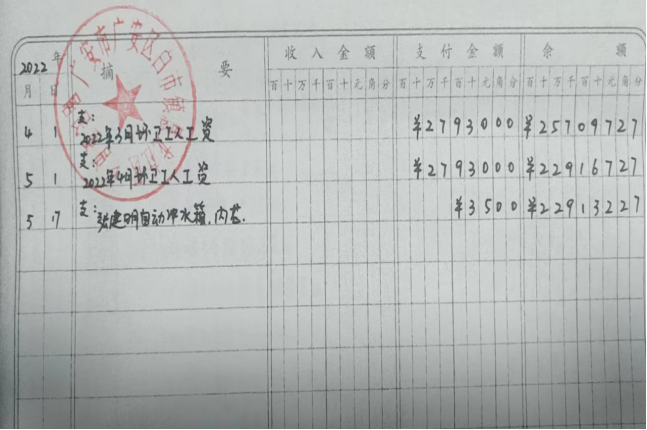 2022年 摘 要 收入金额 支付金额 余 额
月 日 百十万千百十元角分 百十万千百十元角分 百十万千百十元角分
广安市广安区白市镇
4 1 支:2022年3月环卫工人工资 ¥2793000 ¥25709727
5 1 支:2022年4月环卫工人工资 ¥2793000 ¥22916727
5 17 支:张建明自动冲水箱、内芯. ¥3500 ¥22913227